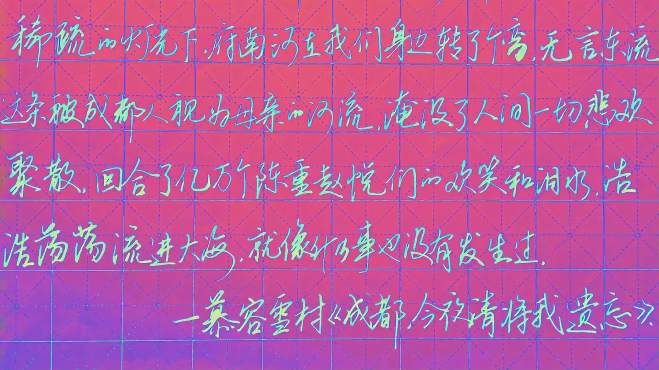 稀疏的灯光下,府南河在我们身边转了个弯,无言东流
这条被成都人视为母亲的河流,淹没了人间一切悲欢
聚散,回合了亿万个陈重赵悦们的欢笑和泪水,浩
浩荡荡流进大海,就像什么事也没有发生过.
—慕容雪村《成都,今夜请将我遗忘》.